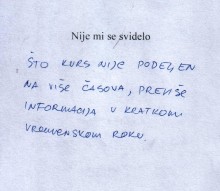 Nije mi se svidelo
ŠTO KURS NIJE PODELJEN
NA VIŠE ČASOVA, PREVIŠE
INFORMACIJA U KRATKOM
VREMENSKOM ROKU